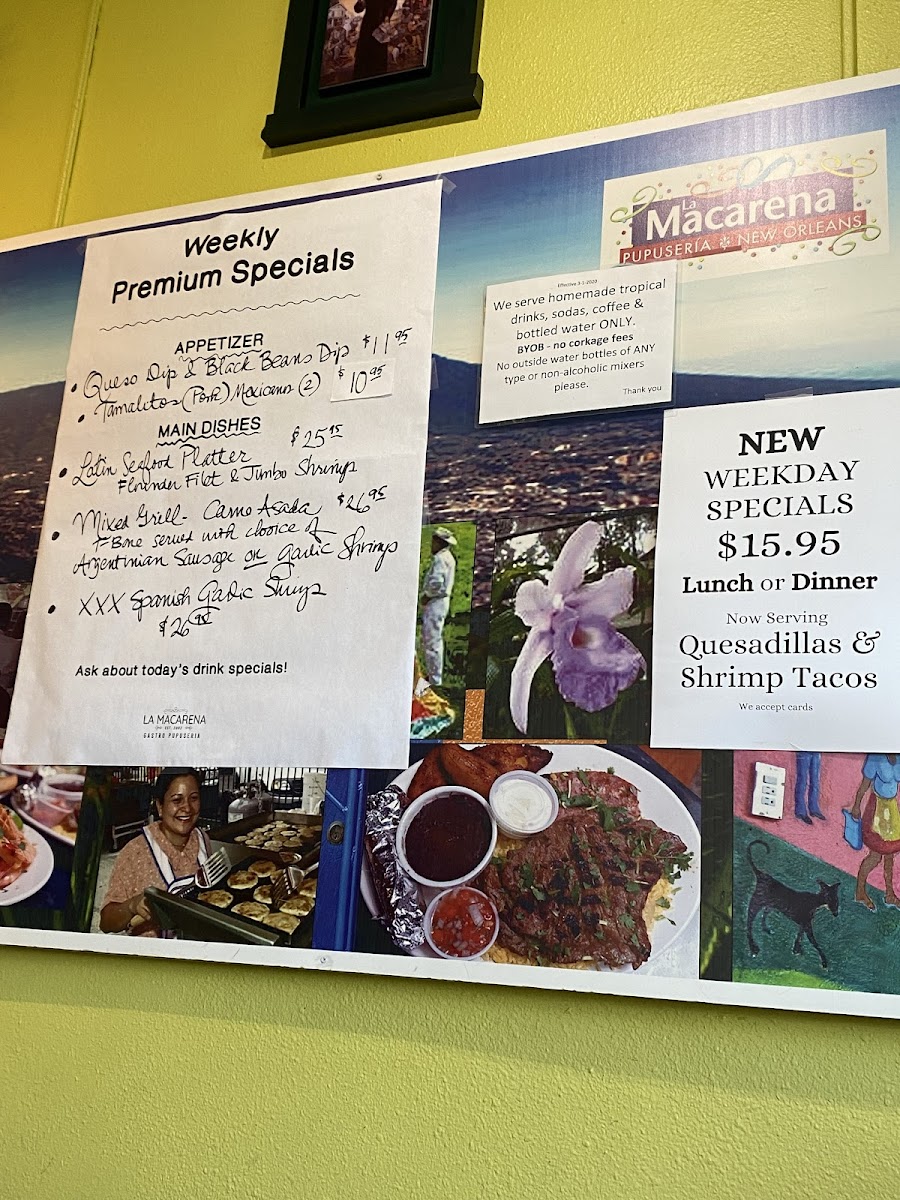 Weekly
Premium Specials
APPETIZER
• Queso Dip & Black Beans Dip $11.95
• Tamalitos (Pork) Mexicanos (2) $10.95
MAIN DISHES
• Latin Seafood Platter $25.95
Flounder Filet & Jumbo Shrimp
• Mixed Grill - Carne Asada $26.95
T-Bone served with choice of
Argentinian Sausage or Garlic Shrimps
• XXX Spanish Garlic Shrimps
$26.95
Ask about today's drink specials!
LA MACARENA
GASTRO PUPUSERIA
La
Macarena
PUPUSERÍA NEW ORLEANS
Effective 3-1-2023
We serve homemade tropical
drinks, sodas, coffee &
bottled water ONLY.
BYOB - no corkage fees
No outside water bottles of ANY
type or non-alcoholic mixers
please.
Thank you
NEW
WEEKDAY
SPECIALS
$15.95
Lunch or Dinner
Now Serving
Quesadillas &
Shrimp Tacos
We accept cards